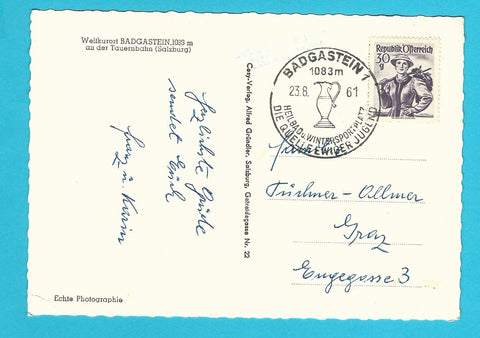 Weltkurort BADGASTEIN, 1083 m
an der Tauernbahn (Salzburg)
Herzlichste Grüße
sendet Euch
Franz u. Karin
Echte Photographie
Cosy-Verlag, Alfred Gründler, Salzburg, Getreidegasse Nr. 22
BADGASTEIN 1
1083m
23.8. 61
HEILBAD u. WINTERSPORTPLATZ
DIE QUELLE EWIGER JUGEND
Republik Österreich
30
g
Türhner-Ollmer
Graz
Engegasse 3